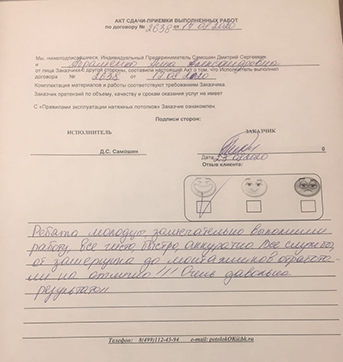 АКТ СДАЧИ-ПРИЕМКИ ВЫПОЛНЕННЫХ РАБОТ
по договору № 2038 от 17.08.2020
Мы, нижеподписавшиеся, Индивидуальный Предприниматель Самошин Дмитрий Сергеевич
и Анна Александровна
от лица Заказчика с другой стороны, составили настоящий Акт о том, что Исполнитель выполнил
договор № 2038 от 17.08.2020
Комплектация материалов и работы соответствуют требованиям Заказчика.
Заказчик претензий по объему, качеству и срокам оказания услуг не имеет
С «Правилами эксплуатации натяжных потолков» Заказчик ознакомлен.
Подписи сторон:
ИСПОЛНИТЕЛЬ ЗАКАЗЧИК
Д.С. Самошин
Дата
Отзыв клиента:
Ребята молодцы, замечательно выполнили
работу. Все чисто, быстро, аккуратно. Все службы,
от замерщика до монтажников отработа-
ли на отлично!!! Очень довольна
результатом
Телефон: 8(499)112-43-94 e-mail: potolokOK@bk.ru